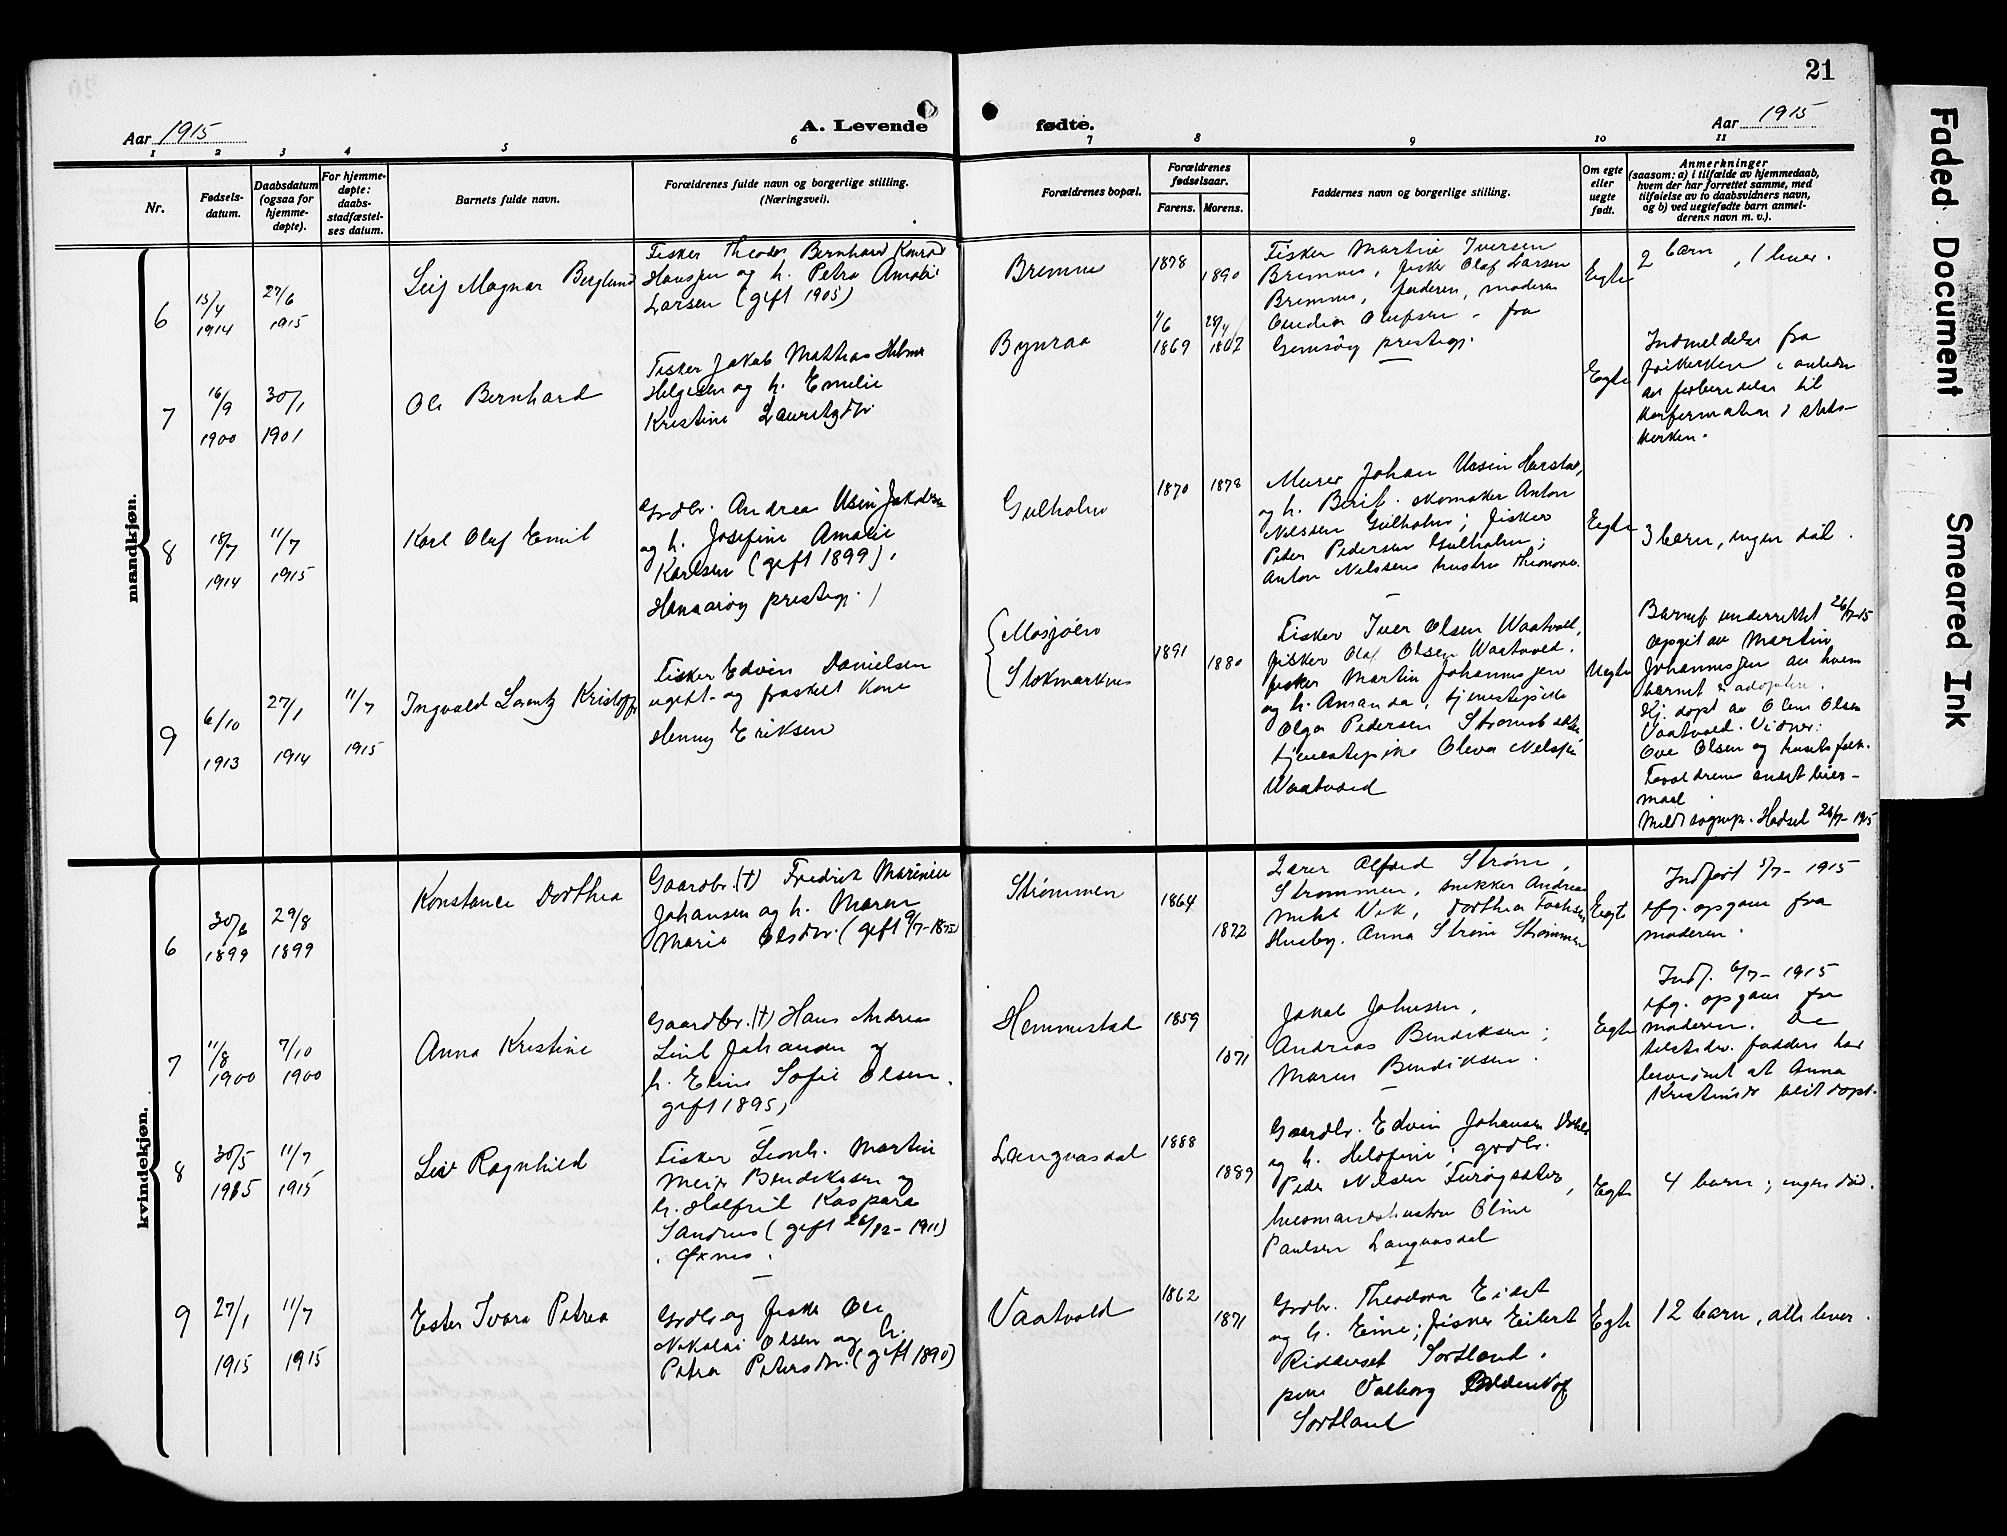 21
Aar 1915
A. Levende
fødte.
Aar 1915
1 2 3 4 5 6 7 8 9 10 11
Nr.
Fødsels-
datum.
Daabsdatum
(ogsaa for
hjemme-
døpte).
For hjemme-
døpte:
daabs-
stadfæstel-
ses datum.
Barnets fulde navn.
Forældrenes fulde navn og borgerlige stilling.
(Næringsvei).
Forældrenes bopæl.
Forældrenes
fødselsaar.
Farens. Morens.
Faddernes navn og borgerlige stilling.
Om egte
eller
uegte
født.
Anmerkninger
(saasom: a) i tilfælde av hjemmedaab,
hvem der har forrettet samme, med
tilføielse av to daabsvidners navn,
og b) ved uegtefødte barn anmel-
derens navn m. v.).
mandkjøn.
6
15/4
1914
27/6
1915
Leif Magnar Berglund
Fisker Theodor Bernhard Konrad
Hansen og h. Petra Amalie
Larsen (gift 1905)
Bremnes
1878
1890
Fisker Martin Iversen
Bremnes, fisker Olaf Larsen
Bremnes, faderen, moderen
Egte
2 barn, 1 lever.
7
16/9
1900
30/1
1901
Ole Bernhard
Fisker Jakob Mathias Hilmer
Helgesen og h. Emelie
Kristine Lauritzdtr.
Bynraa
1/6
1869
28/4
1867
Olufsen. fra
Gimsøy prestegj.
Egte
Indmeldes fra
frikirken i anledn.
av forberedelse til
konfirmation i stats-
kirken.
8
18/7
1914
11/7
1915
Karl Olaf Emil
Grdbr. Andreas Usin Jakobsen
og h. Josefine Amalie
Karlsen (gift 1899),
Hamarøy prestegj.)
Gulholm
1870
1878
Murer Johan Ursin Harstad,
og h. Berit. skomaker Anton
Nilssen Gulholm; fisker
Peder Pedersen Gulholm;
Anton Nilssens hustru
Egte
3 barn, ingen død.
9
6/10
1913
27/1
1914
11/7
1915
Ingvald Lorentz Kristoffer
Fisker Edvin Danielsen
ugift og fraskilt kone
Henny Eriksen
Mosjøen
Stokmarknes
1891
1880
Fisker Iver Olsen Vaatvold,
fisker Olaf Olsen Vaatvold,
fisker Martin Johannesen
og h. Amanda, tjenestepike
Olga Pedersen
tjenestepike Oleva Nilssen
Vaatvold
Uegte
Barnef. underrettet 26/7-15
opgit av Martin
Johannesen av hvem
barnet er adopter.
Hj. døpt av Oluf Olsen
Vaatvold. Vidner:
Ove Olsen og husets folk.
Forældrene andet leier-
maal
Meldt sognepr. Hadsel 26/7-1915
kvindekjøn.
6
30/6
1899
29/8
1899
Konstance Dorthea
Gaardbr. (†) Fredrik Marinius
Johansen og h. Maren
Marie Olsdtr. (gift
Strømmen
1864
1872
Lærer Alfred Strøm,
Strømmen, snekker Andreas
Vik, Dorthea
Husby. Anna Strøm Strømmen
Egte
Indført 5/7-1915
efg. opgave fra
moderen.
7
11/8
1900
7/10
1900
Anna Kristine
Gaardbr. (†) Hans Andreas
Johansen og
h. Eline Sofie Olsen.
gift 1895)
Hemmestad
1859
1871
Jakob Johnsen,
Andreas Bendiksen;
Maren Bendiksen.
Egte
Indf. 6/7-1915
efg. opgave fra
moderen. De
tilstedev. faddere har
bevidnet at Anna
Kristine er blit døpt.
8
30/5
1915
11/7
1915
Liv Ragnhild
Fisker Leonh. Martin
Meier Bendiksen og
h. Halfril Kaspara
Sandnes (gift 26/12-1911)
i Øxnes.
Langvasdal
1888
1889
Gaardbr. Edvin Johansen
og h. Helofine; grdbr.
Peder Nilsen Furøysater,
husmandshustru Oline
Paulsen Langvasdal
Egte
4 barn; ingen død.
9
27/1
1915
11/7
1915
Ester Ivara Petrea
Grdbr. og fisker Ole
Nikolai Olsen og h.
Petra Petersdtr. (gift 1890)
Vaatvold
1862
1871
Grdbr. Theodora Eidet
og h. Eine; fisker Eilert
Ridderset Sortland.
pike Valborg
Sortland
Egte
12 barn, alle lever.
Faded Document
Smeared Ink